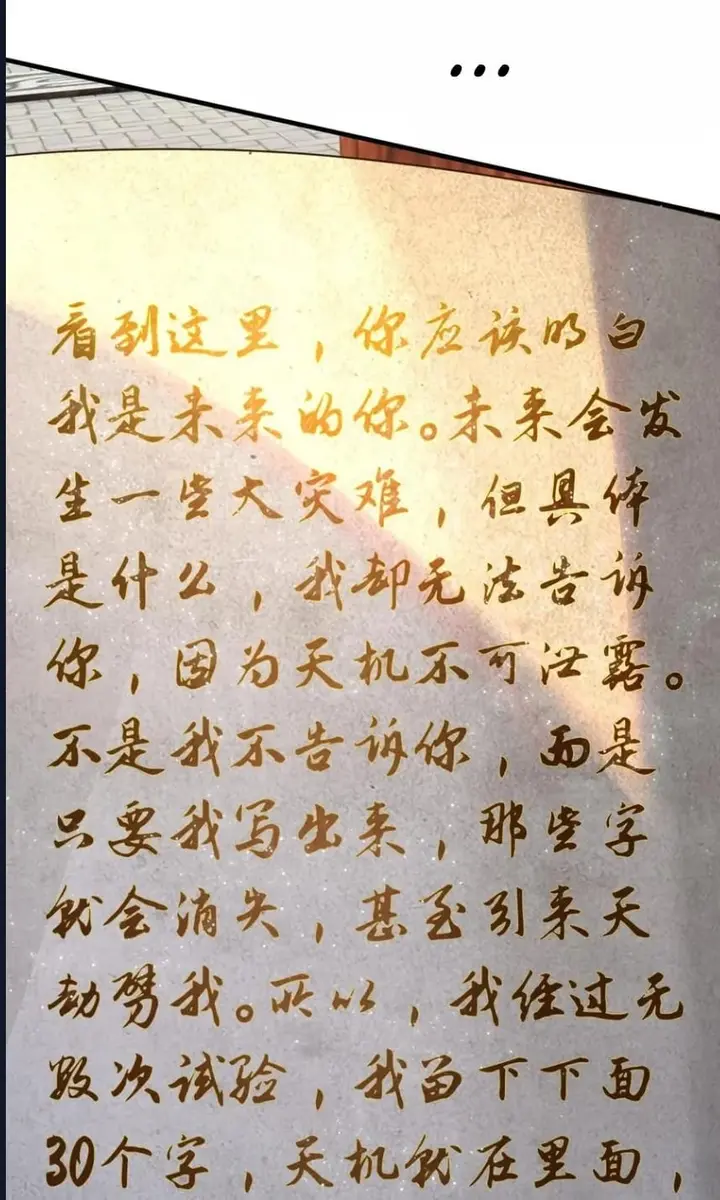 ...
看到这里，你应该明白
我是未来的你。未来会发
生一些大灾难，但具体
是什么，我却无法告诉
你，因为天机不可泄露。
不是我不告诉你，而是
只要我写出来，那些字
就会消失，甚至引来天
劫劈我。所以，我经过无
数次试验，我留下下面
30个字，天机就在里面，